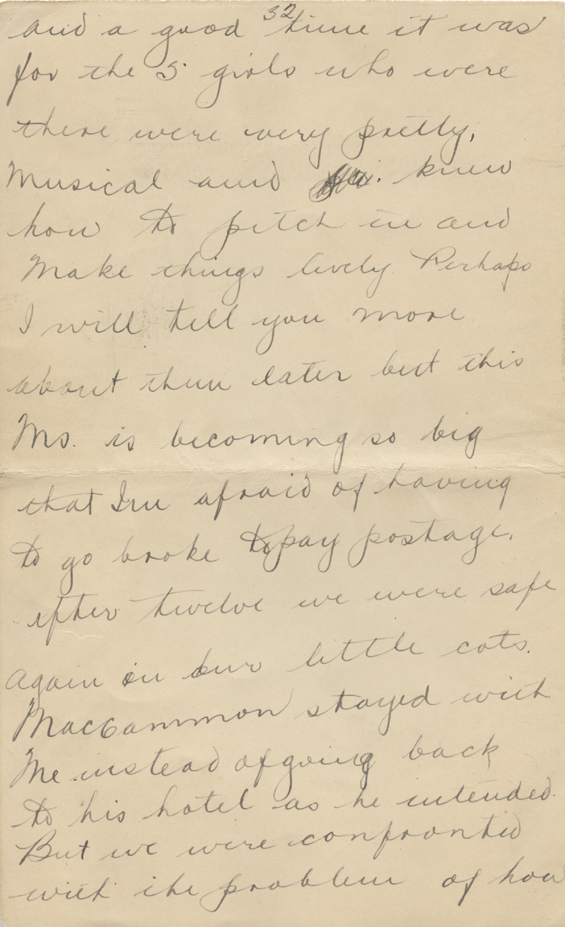 32
and a good time it was
for the 5 girls who were
there were very pretty,
Musical and knew
how to pitch in and
Make things lively Perhaps
I will tell you more
about them later but this
Ms. is becoming so big
that Im afraid of having
to go broke to pay postage.
After twelve we were safe
again in our little cots.
MacCammon stayed with
Me instead of going back
to his hotel as he intended.
But we were confronted
with the problem of how